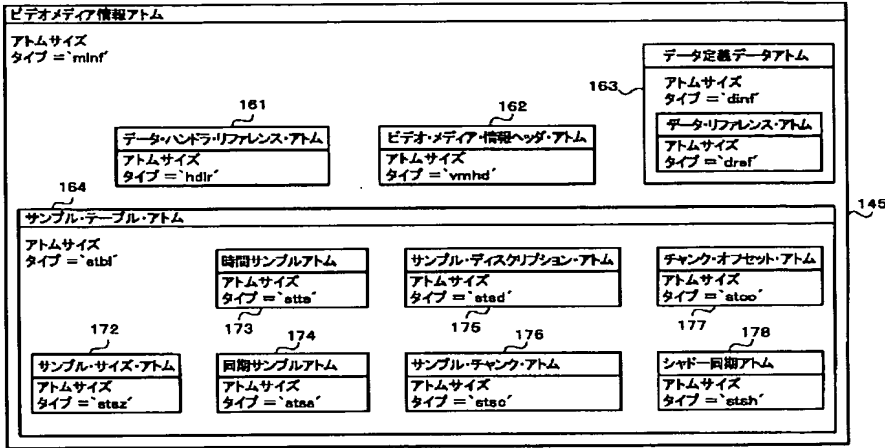 ビデオメディア情報アトム
アトムサイズ
タイプ =`minf'
データ定義データアトム
163
アトムサイズ
タイプ =`dinf'
データ・リファレンス・アトム
アトムサイズ
タイプ =`dref'
161
データ・ハンドラ・リファレンス・アトム
アトムサイズ
タイプ =`hdlr'
162
ビデオ・メディア・情報ヘッダ・アトム
アトムサイズ
タイプ =`vmhd'
145
164
サンプル・テーブル・アトム
アトムサイズ
タイプ =`stbl'
時間サンプルアトム
アトムサイズ
タイプ =`stts'
173
サンプル・ディスクリプション・アトム
アトムサイズ
タイプ =`stsd'
175
チャンク・オフセット・アトム
アトムサイズ
タイプ =`stco'
177
172
サンプル・サイズ・アトム
アトムサイズ
タイプ =`stsz'
174
同期サンプルアトム
アトムサイズ
タイプ =`stss'
176
サンプル・チャンク・アトム
アトムサイズ
タイプ =`stsc'
178
シャドー同期アトム
アトムサイズ
タイプ =`stsh'